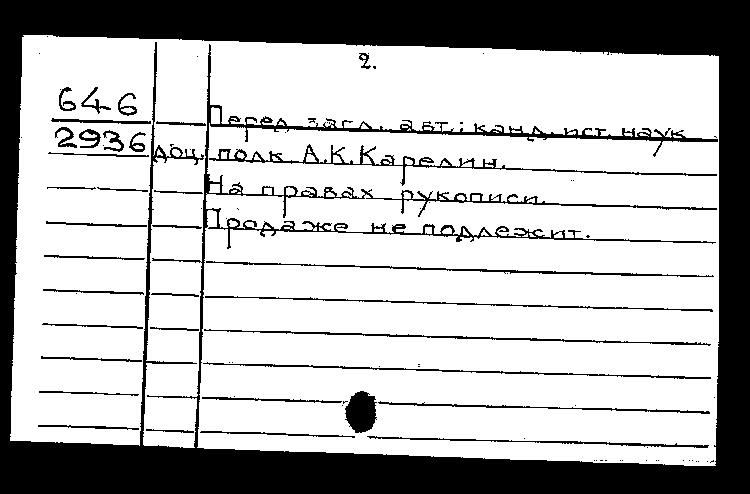 2.
64-6
Перед загл. авт.: канд. ист. наук
2936
доц. полк А.К.Карелин.
На правах рукописи.
Продаже не подлежит.